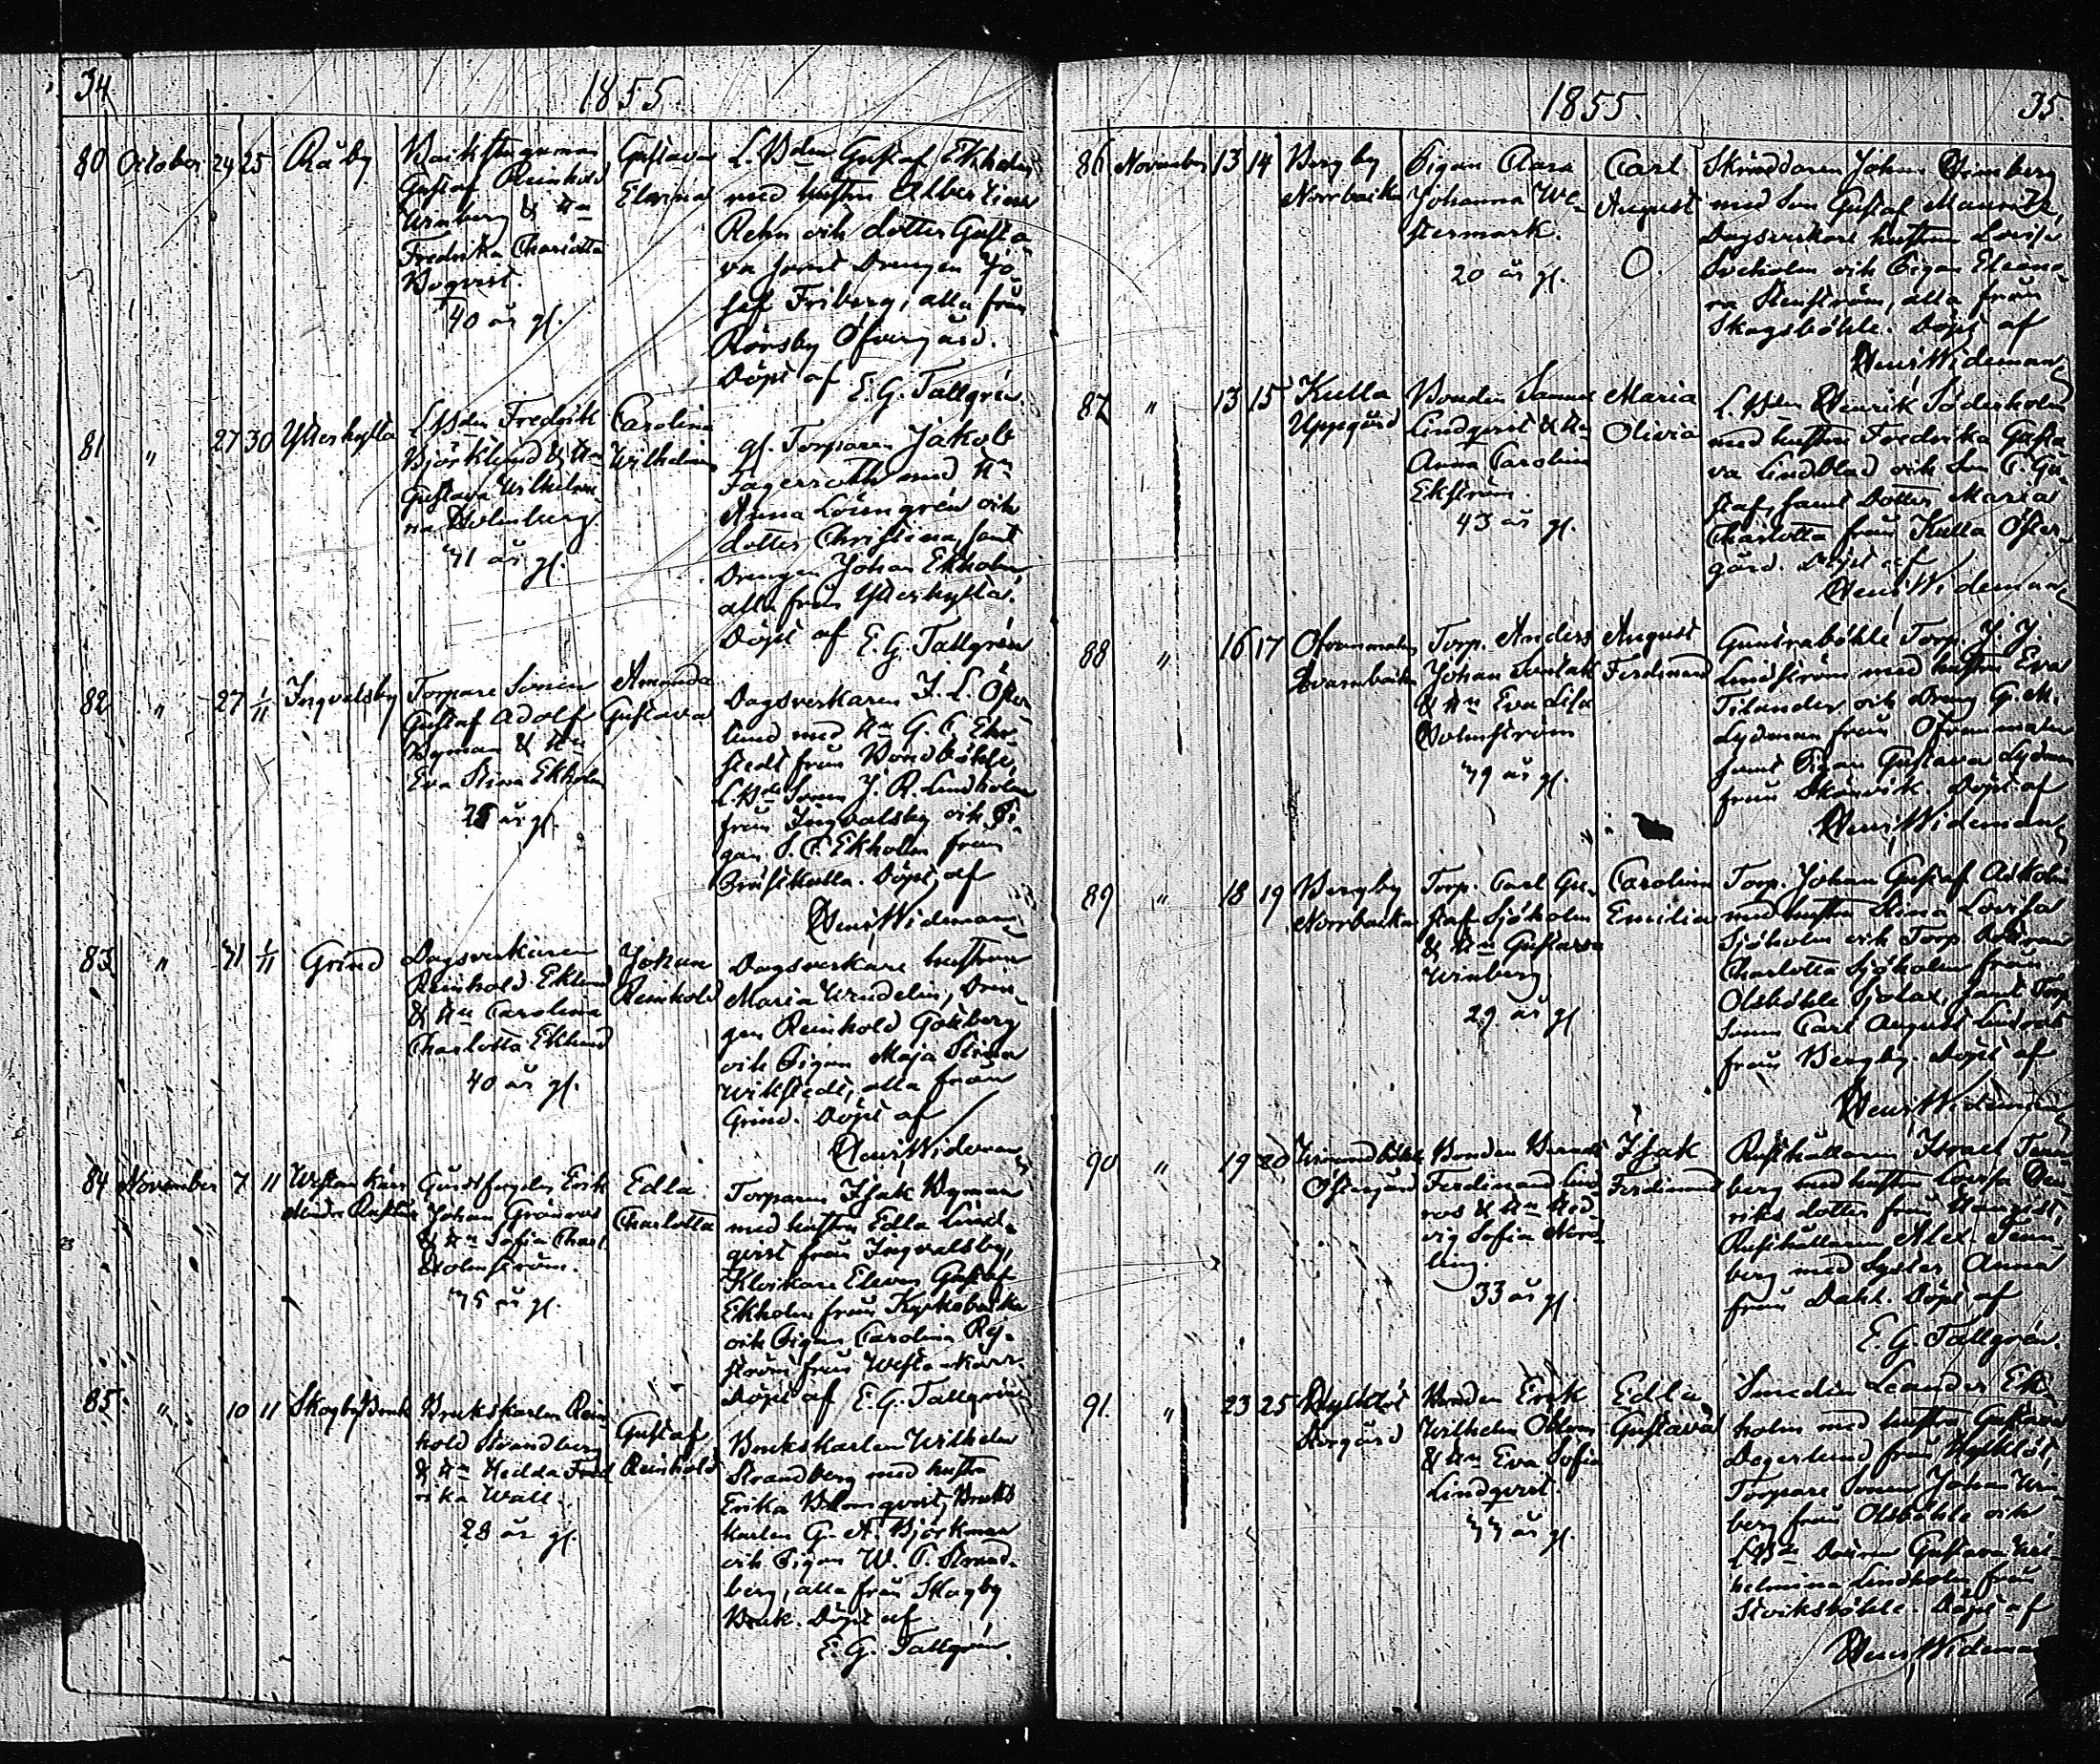 34.
1855.
80 October 24 25 Råby
Gustaf Reinhold
Winberg & Hu
Fredrika Charlotta
40 år gl.
Gustava
L. Bden Gustaf Ekholm
med hustru Albertina
Rehn och dotter Gusta-
va samt Drengen Jo-
sef Friberg, alla från
Rörsby Öfvergård.
Döpt af E. G. Tallgrén
81 " 27 30 Ytterkysta
L. Bden Fredrik
Björklund & Hu
Gustava Wilhelmi-
na Holmberg
31 år gl.
Carolina
Wilhelmina
gl. Torparen Jakob
Fagerroth med Hu
Anna Löfngrén och
dotter Christina, samt
Drengen Johan Ekholm,
alla från Ytterkysta.
Döpt af E. G. Tallgrén
82 " 27 1/11 Ingvalsby
Torpare Sonen
Gustaf Adolf
Nyman & Hu
Eva Stina Ekholm
år gl.
Amanda
Gustava
Dagsverkaren J. L. Öster-
lund med Hu G. C. Ek-
stedt från Bondböhle,
L. Bde Sonen J. R. Lindholm
från Ingvalsby och Pi-
gan S. C. Ekholm från
Döpt af
Henr. Wideman
83 " 31 1/11 Grind
Dagsverkaren
Reinhold Eklund
& Hu Carolina
Charlotta Eklund
40 år gl.
Johan
Reinhold
Dagsverkare hustrun
Maria Wendelin, Dren-
gen Reinhold Gökberg
och Pigan Maja Stina
Wikstedt, alla från
Grind. Döpt af
Henr. Wideman
84 November 7 11 Westankärr
Erik
Johan Grönroos
& Hu Sofia Charl.
Holmström.
35 år gl.
Edla
Charlotta
Torparen Isak Nyman
med hustru Edla Lind-
qvist från Ingvalsby,
Klockare Eleven Gustaf
Ekholm från Kyrkobacka
och Pigan Carolina Rej-
ström från Westankärr.
Döpt af E. G. Tallgrén
85. " 10 11 Skogby Bruk
Brukskarlen Rein-
hold Strandberg
& Hu Hedda Fred
rika Wall.
28 år gl.
Gustaf
Reinhold
Brukskarlen Wilhelm
Strandberg med hustru
Erika Blomqvist, Bruks
karlen G. A. Björkman
och Pigan W. C. Strand-
berg, alla från Skogby
Bruk. Döpt af
E. G. Tallgrén.
1855.
35.
86 November 13 14 Bergby
Norrbacka
Pigan Clara
Johanna We-
stermark.
20 år gl.
Carl
August
O.
Skräddaren Johan Winberg
med Son Gustaf Mauritz,
Dagsverkare hustrun Lovisa
Sveholm och Pigan Eleono-
ra Stenström, alla från
Skogsböhle. Döpt af
Henr. Wideman
87 " 13 15 Kulla
Uppgård
Bonden Samuel
Lindqvist & Hu
Anna Carolina
Ekström.
43 år gl.
Maria
Olivia
L. Bden Henrik Söderholm
med hustru Fredrika Gusta
va Lindblad och Son C. Gu-
staf, samt Dotter Maria
Charlotta från Kulla Öster-
gård. Döpt af
Henr. Wideman
88 " 16 17
Torp. Anders
Johan
& Hu Eva Lisa
Holmström
39 år gl.
August
Ferdinand
Gunnarsböhle Torp. J. J.
Lindström med hustru Eva
Tilander och Dreng G. M.
Lydman från Ofvanmalm
samt Pigan Gustava Lydman
från Skärvik. Döpt af
Henr. Wideman
89 " 18 19 Bergby
Norrbacka
Torp. Carl Gu-
staf Sjöholm
& Hu Gustava
Winberg
29 år gl
Carolina
Emilia
Torp. Johan Gustaf Askholm
med hustru Stina Lovisa
Sjöholm och Torp. Dottren
Charlotta Sjöholm från
Olsböhle Sjölax, samt Torp
Sonen Carl August
från Bergby. Döpt af
Henr. Wideman
90 " 19 20
Östergård
Bonden Bernt
Ferdinand Lind-
roos & Hu Hed-
vig Sofia Nord-
ling.
33 år gl.
Isak
Ferdinand
Rusthållaren Israel Tenn-
berg med hustru Lovisa Hen-
riks dotter från
Rusthållaren Alex. Tenn-
berg med Syster Anna
från Dahl. Döpt af
E. G. Tallgrén.
91. " 23 25
Storgård
Bonden Erik
Wilhelm
& Hu Eva Sofia
Lindqvist.
33 år gl.
Edla
Gustava
Smeden Leander Ek-
holm med hustru Gustava
Degerlund från
Torpare Sonen Johan Win-
berg från Olsböhle och
L. Bde Dottren Gustava Wil-
helmina Lindholm från
Döpt af
Henr. Wideman